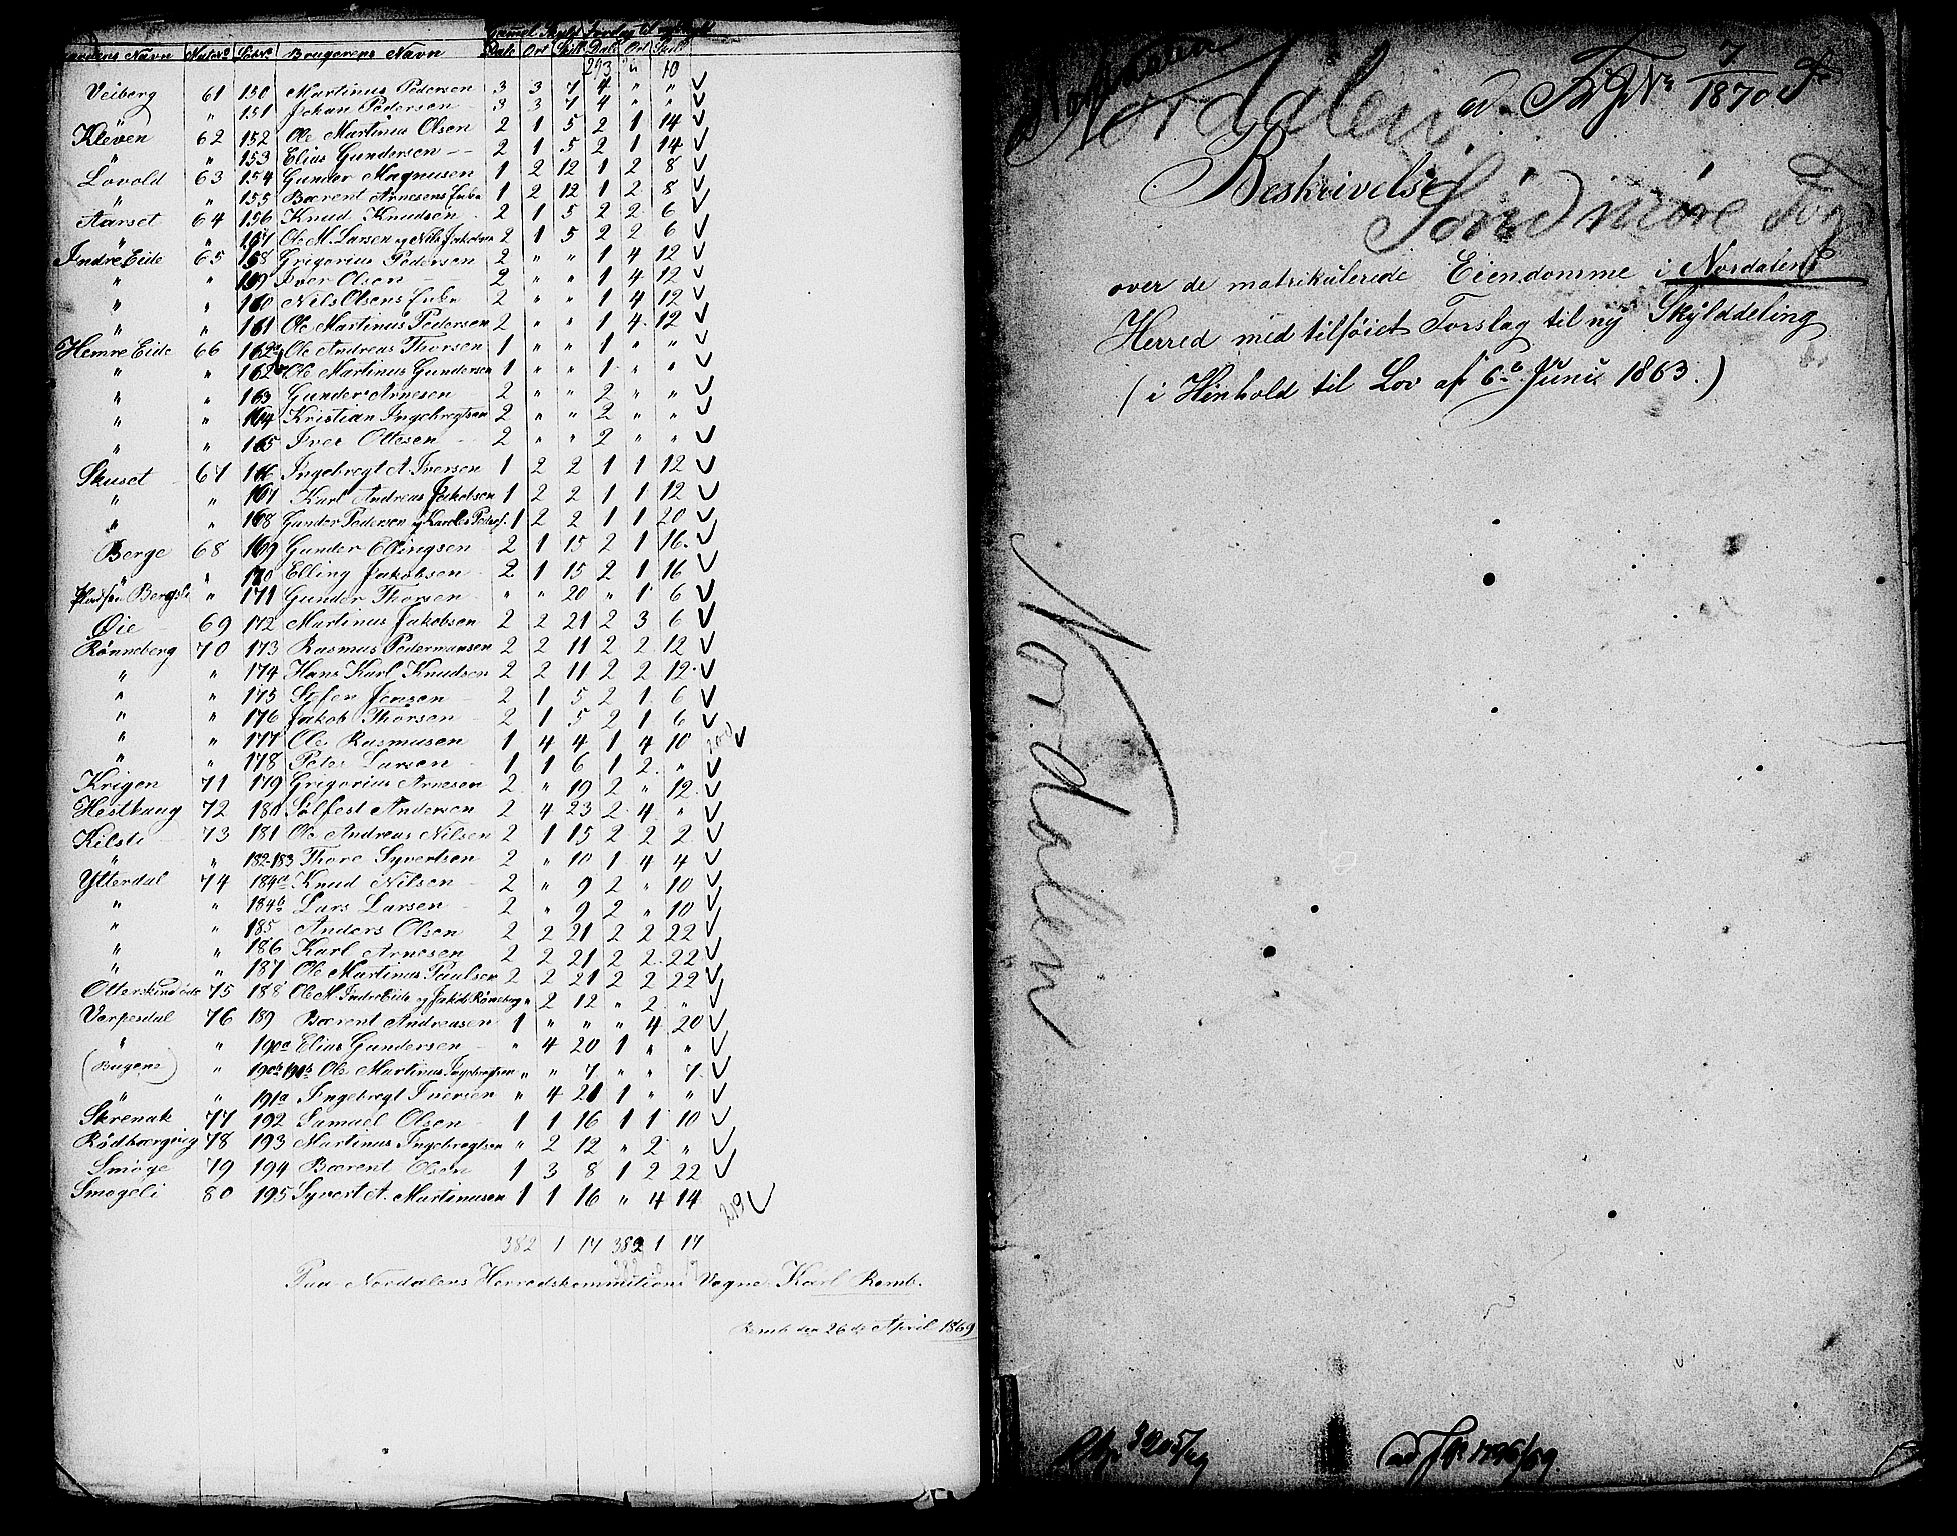 Gammel Skyld Forslag til ny Skyld
Gaardens Navn Matr No Löbe No Brugerens Navn Dale Ort Skil Dal. Ort Skil
293 " 10
Veiberg 61 150 Martinus Pedersen 3 3 7 4 " "
" " 151 Johan Pedersen 3 3 7 4 " "
Kleven 62 152 Ole Martinus Olsen 2 1 5 2 1 14
" " 153 Elias Gundersen 2 1 5 2 1 14
Lovold 63 154 Gunder Magnusen 1 2 12 1 2 8
" " 155 Bærent Arnesens Enke 1 2 12 1 2 8
Aarset 64 156 Knud Knudsen 2 1 5 2 2 6
" " 157 Ole M. Larsen og Nils Jakobsen 2 1 5 2 2 6
Indre Eide 65 158 Grigorius Pedersen 2 " " 1 4 12
" " 159 Iver Olsen 2 " " 1 4 12
" " 160 Nils Olsens Enke 2 " " 1 4 12
" " 161 Ole Martinus Pedersen 2 " " 1 4 12
Hemre Eide 66 162a Ole Andreas Thorsen 1 " " 1 " "
" " 162b Ole Martinus Gundersen 1 " " 1 " "
" " 163 Gunder Arnesen 2 " " 2 " "
" " 164 Kristian Ingebregtsen 2 " " 2 " "
" " 165 Iver Ottesen 2 " " 2 " "
Skuset 67 166 Ingebregt A. Iversen 1 2 2 1 1 12
" " 167 Karl Andreas Jakobsen 1 2 2 1 1 12
" " 168 Gunder Pedersen og Karoles Peders. 1 2 2 1 1 20
Berge 68 169 Gunder Ellingsen 2 1 15 2 1 16
" " 170 Elling Jakobsen 2 1 15 2 1 16
Bergsli " 171 Gunder Thorsen " " 20 " 1 6
Øie 69 172 Martinus Jakobsen 2 2 21 2 3 6
Rønneberg 70 173 Rasmus Pedermansen 2 2 11 2 2 12
" " 174 Hans Karl Knudsen 2 2 11 2 2 12
" " 175 Stefen Jensen 2 1 5 2 1 6
" " 176 Jakob Thorsen 2 1 5 2 1 6
" " 177 Ole Rasmusen 1 4 4 1 4 10
" " 178 Peter Larsen 1 1 6 1 2 "
Krigen 71 179 Grigorius Arnesen 2 " 19 2 " 12
Hesthaug 72 180 Sølfest Andersen 2 4 23 2 4 "
Kilsti 73 181 Ole Andreas Nilsen 2 1 15 2 2 2
" " 182-183 Thore Syvertsen 2 " 10 1 4 4
Ytterdal 74 184a Knud Nilsen 2 " 9 2 " 10
" " 184b Lars Larsen 2 " 9 2 " 10
" " 185 Anders Olsen 2 2 21 2 2 22
" " 186 Karl Arnesen 2 2 21 2 2 22
" " 187 Ole Martinus Paulsen 2 2 21 2 2 22
Otterskindøde 75 188 Ole M. Indre Eide og Jakob Røneberg " 2 12 " 2 "
Verpesdal 76 189 Bærent Andreasen 1 " " " 4 20
" " 190a Elias Gundersen " 4 20 1 " "
(Bugene) " 190b 191b Ole Martinus Ingebregtsen " " 7 " " 7
" " 191a Ingebregt Iversen " 4 21 1 " "
Skrenak 77 192 Samuel Olsen 1 1 16 1 1 10
Rødbærgvig 78 193 Martinus Ingebregtsen " 2 12 " 2 "
Smøge 79 194 Bærent Olsen 1 3 8 1 2 22
Smøgeli 80 195 Syvert A. Martinusen 1 1 16 " 4 14
219
382 1 17 382 1 17
Paa Nordalens Herredskommitions Vegne Karl Remb.
Remb den 26de April 1869
Norddalen
Nordalen ad Fr No 7/1870 F
Beskrivelse
Söndmöre Fog
over de matrikulerede Eiendomme i Nordalens
Herred med tilföiet Forslag til ny Skylddeling
(i Henhold til Lov af 6te Juni 1863.)
Nordalen
3905/69 ad Jk. 1796/69